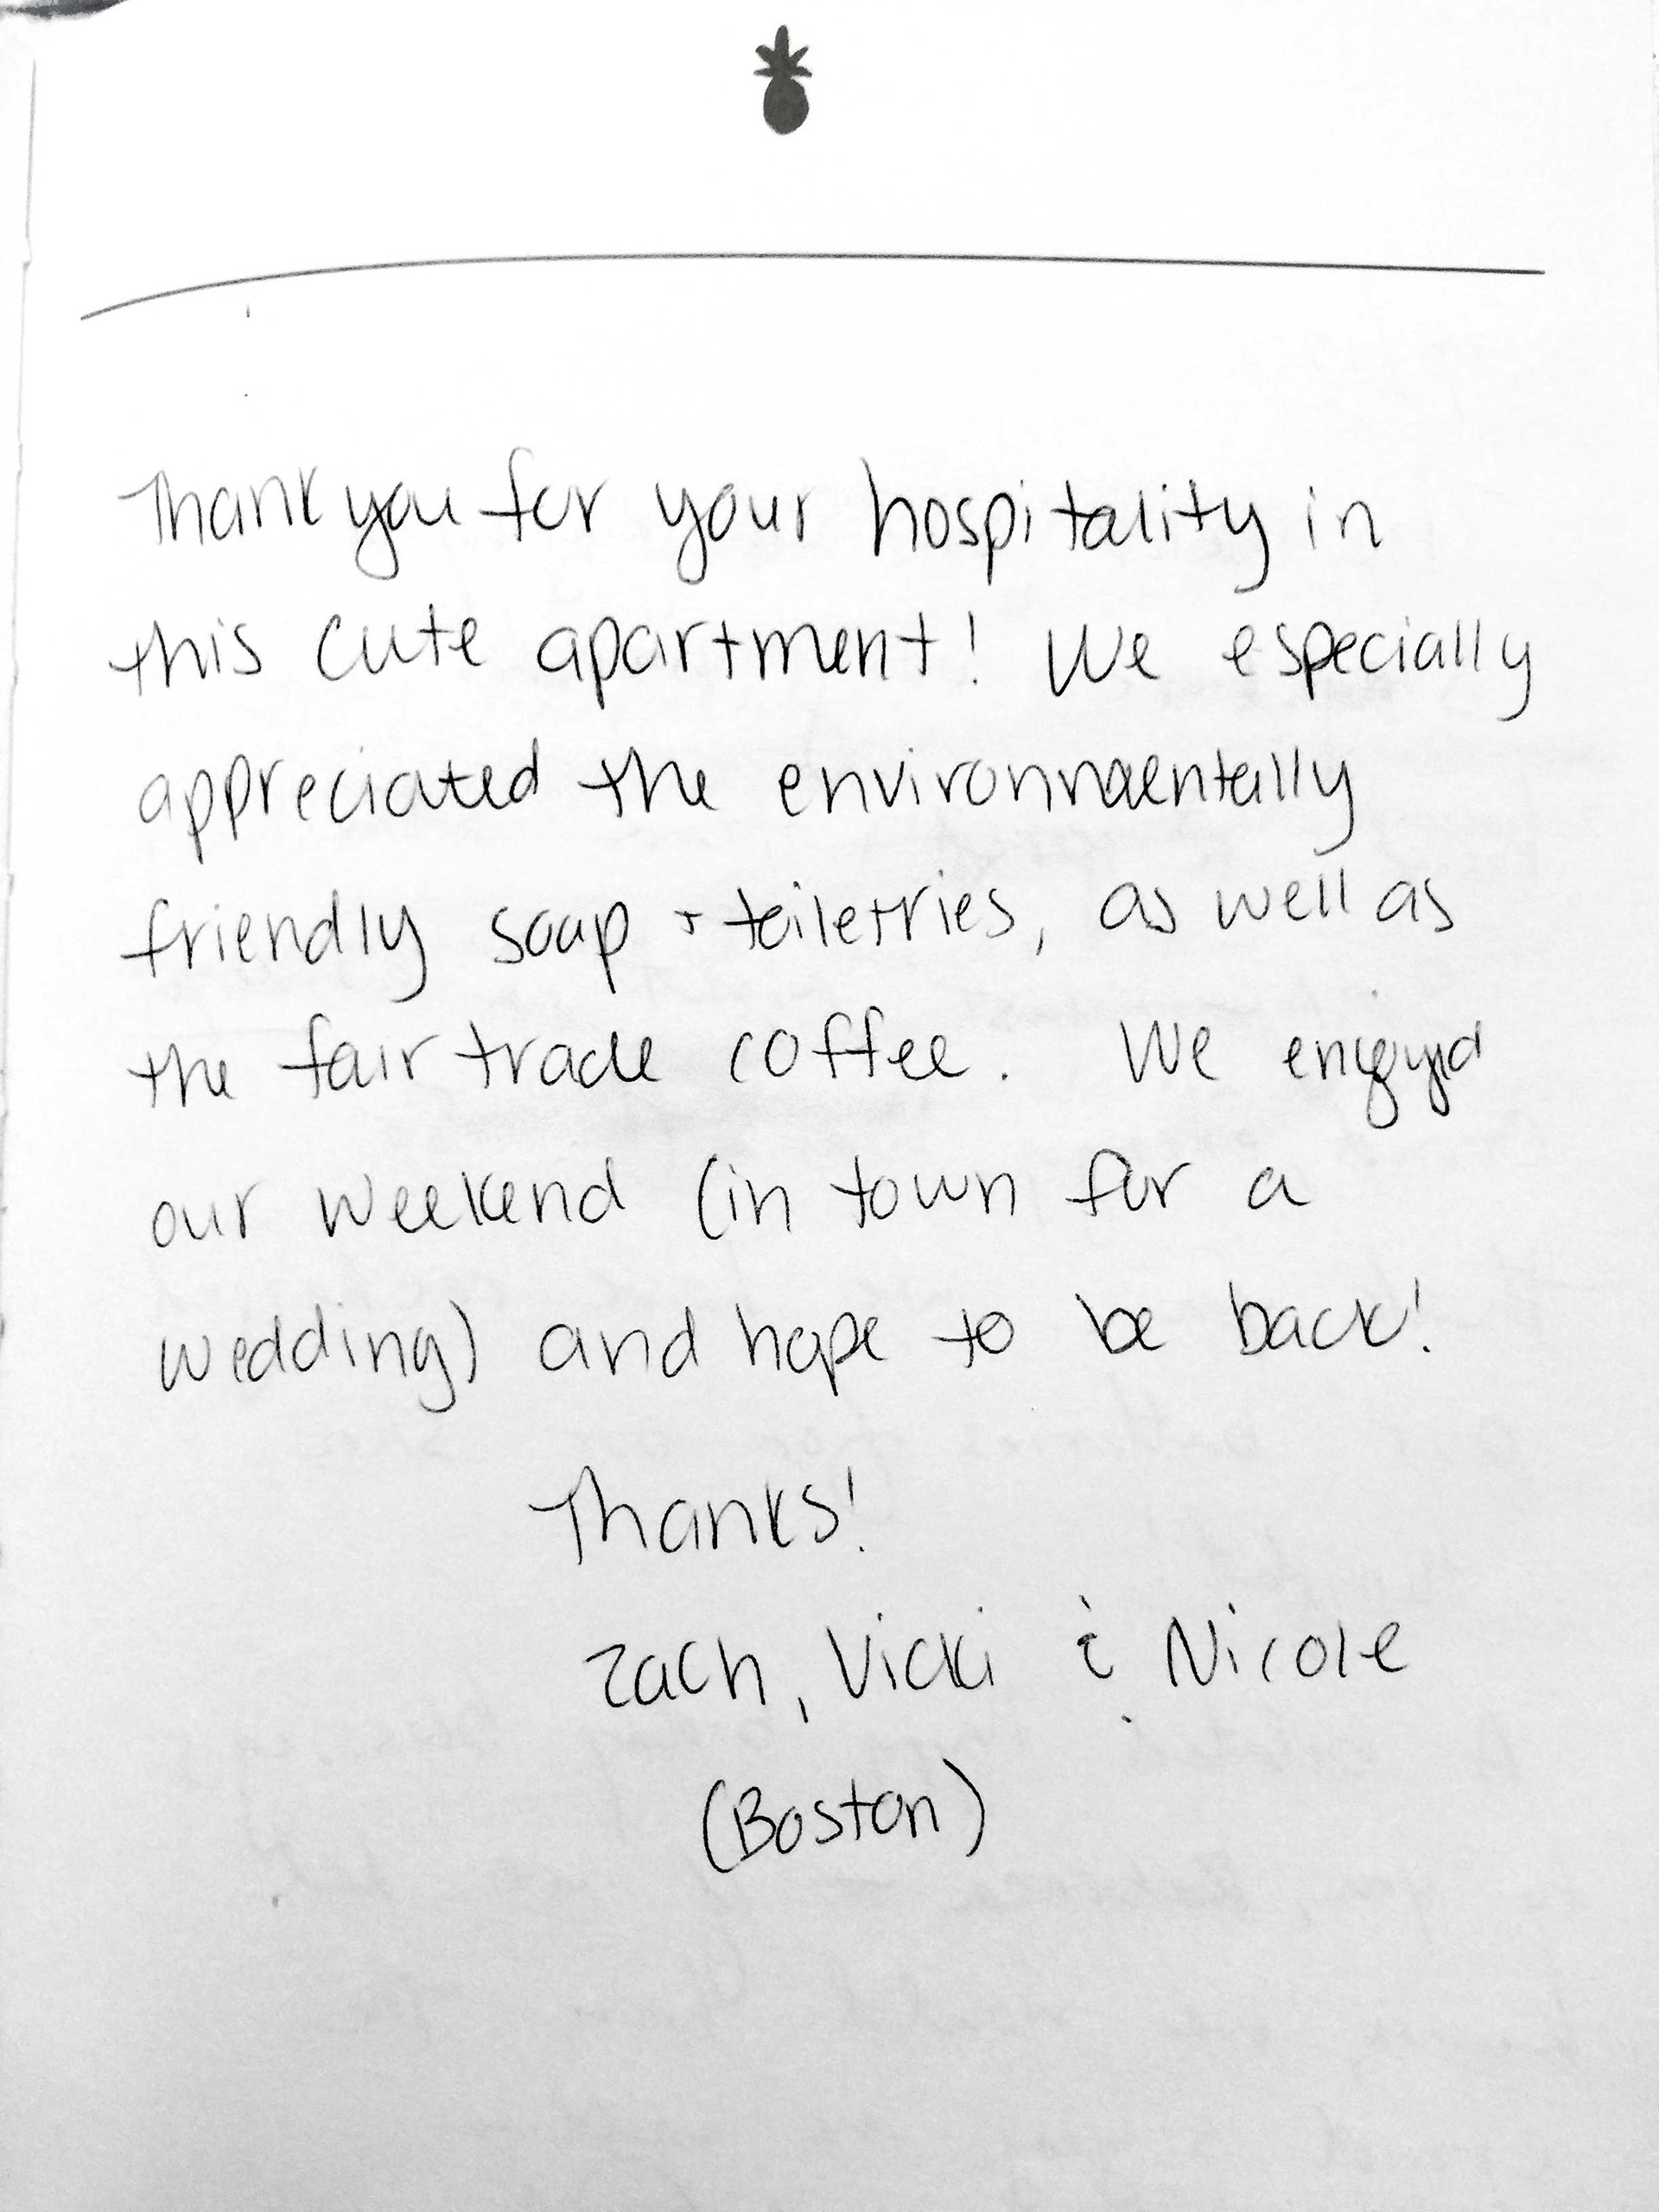 Thank you for your hospitality in
this cute apartment! We especially
appreciated the environmentally
friendly soap + toiletries, as well as
the fair trade coffee. We enjoyed
our weekend (in town for a
wedding) and hope to be back!
Thanks!
Zach, Vicki & Nicole
(Boston)